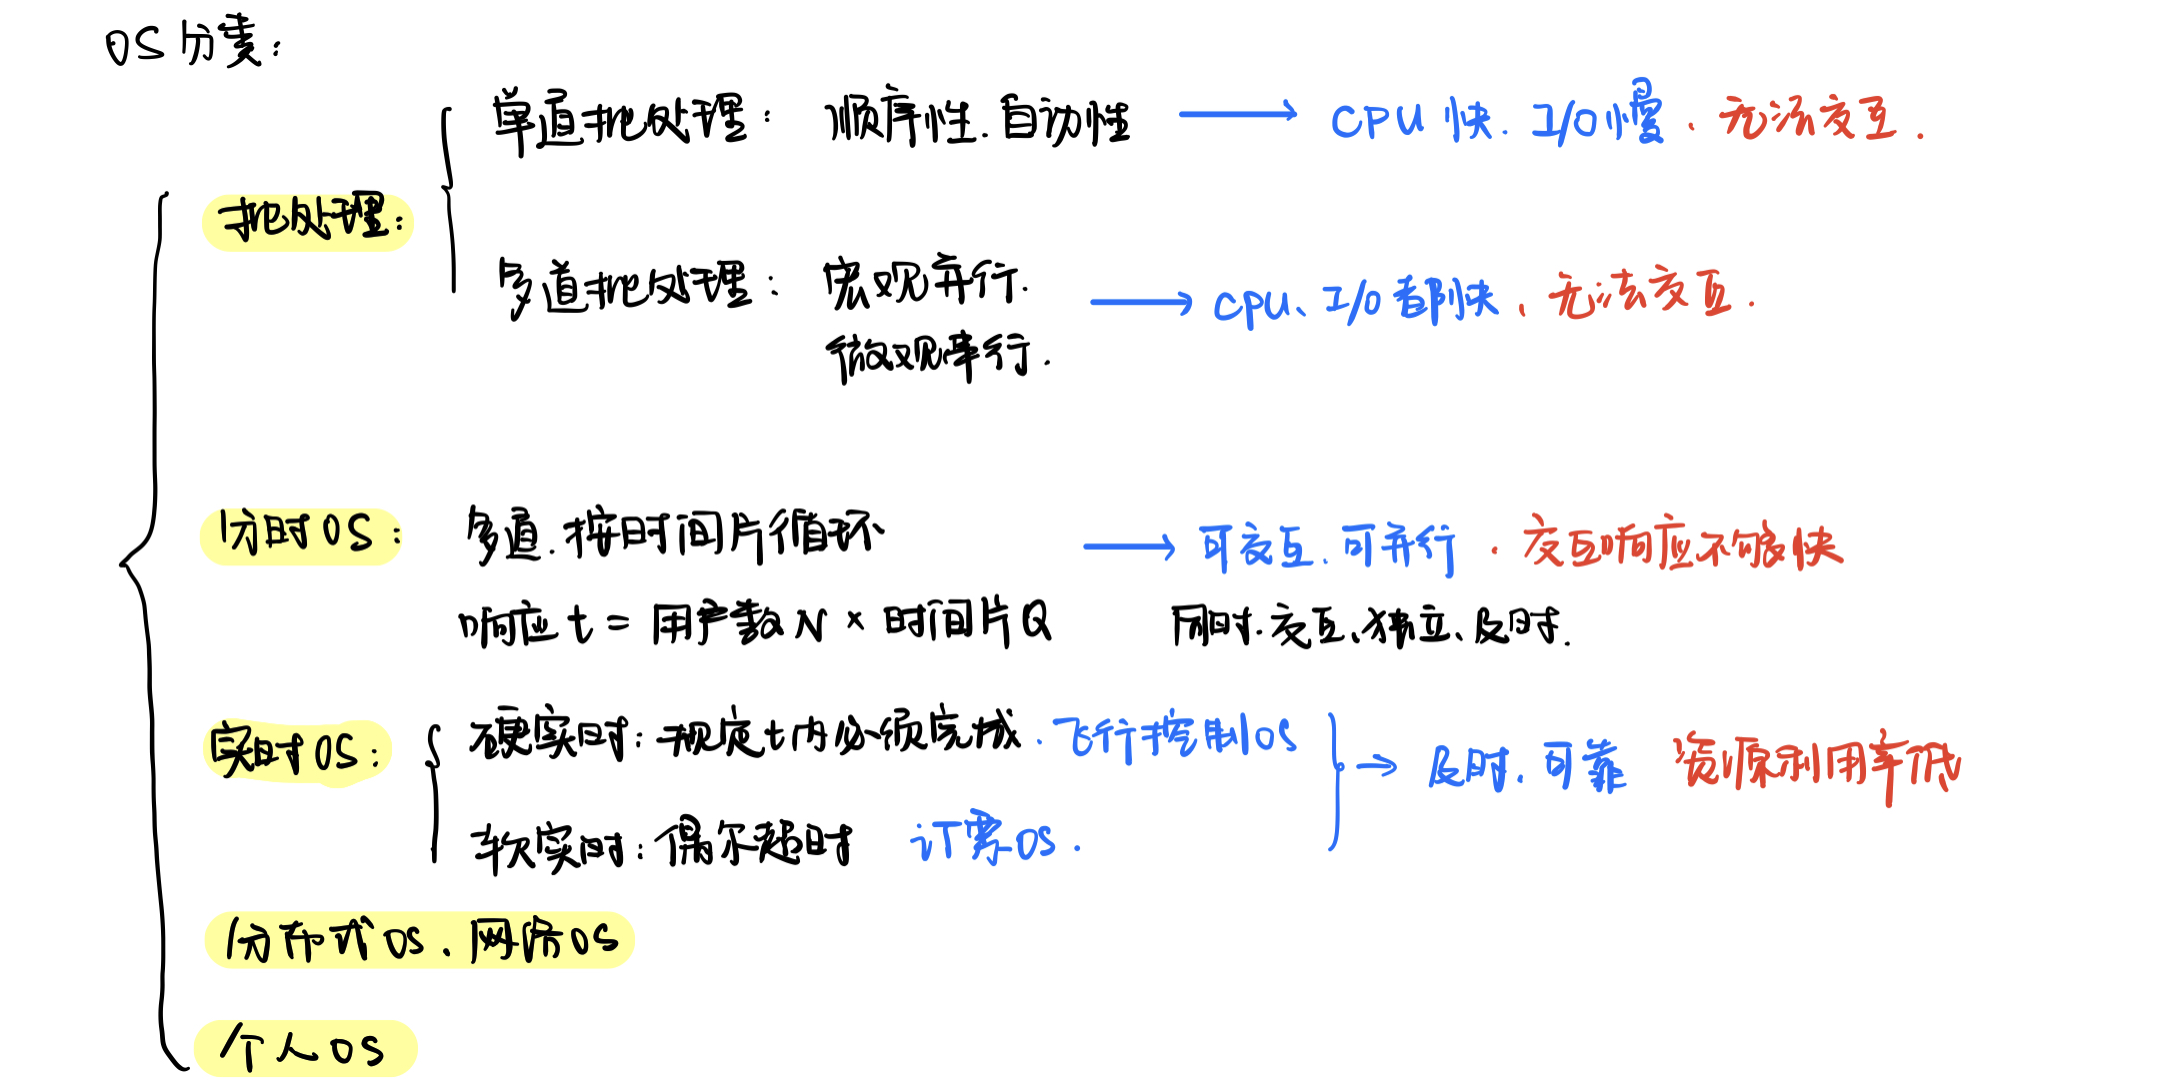 OS分类：
单道批处理： 顺序性.自动性 → CPU快.I/O慢.无法交互.
批处理：
多道批处理： 宏观并行. → CPU、I/O都快、无法交互.
微观串行.
分时OS： 多道.按时间片循环 → 可交互.可并行.交互响应不够快
响应t = 用户数N × 时间片Q 同时.交互、独立、及时.
硬实时：规定t内必须完成.飞行控制OS
实时OS： → 及时.可靠 资源利用率低
软实时：偶尔超时 订票OS.
分布式OS、网络OS
个人OS